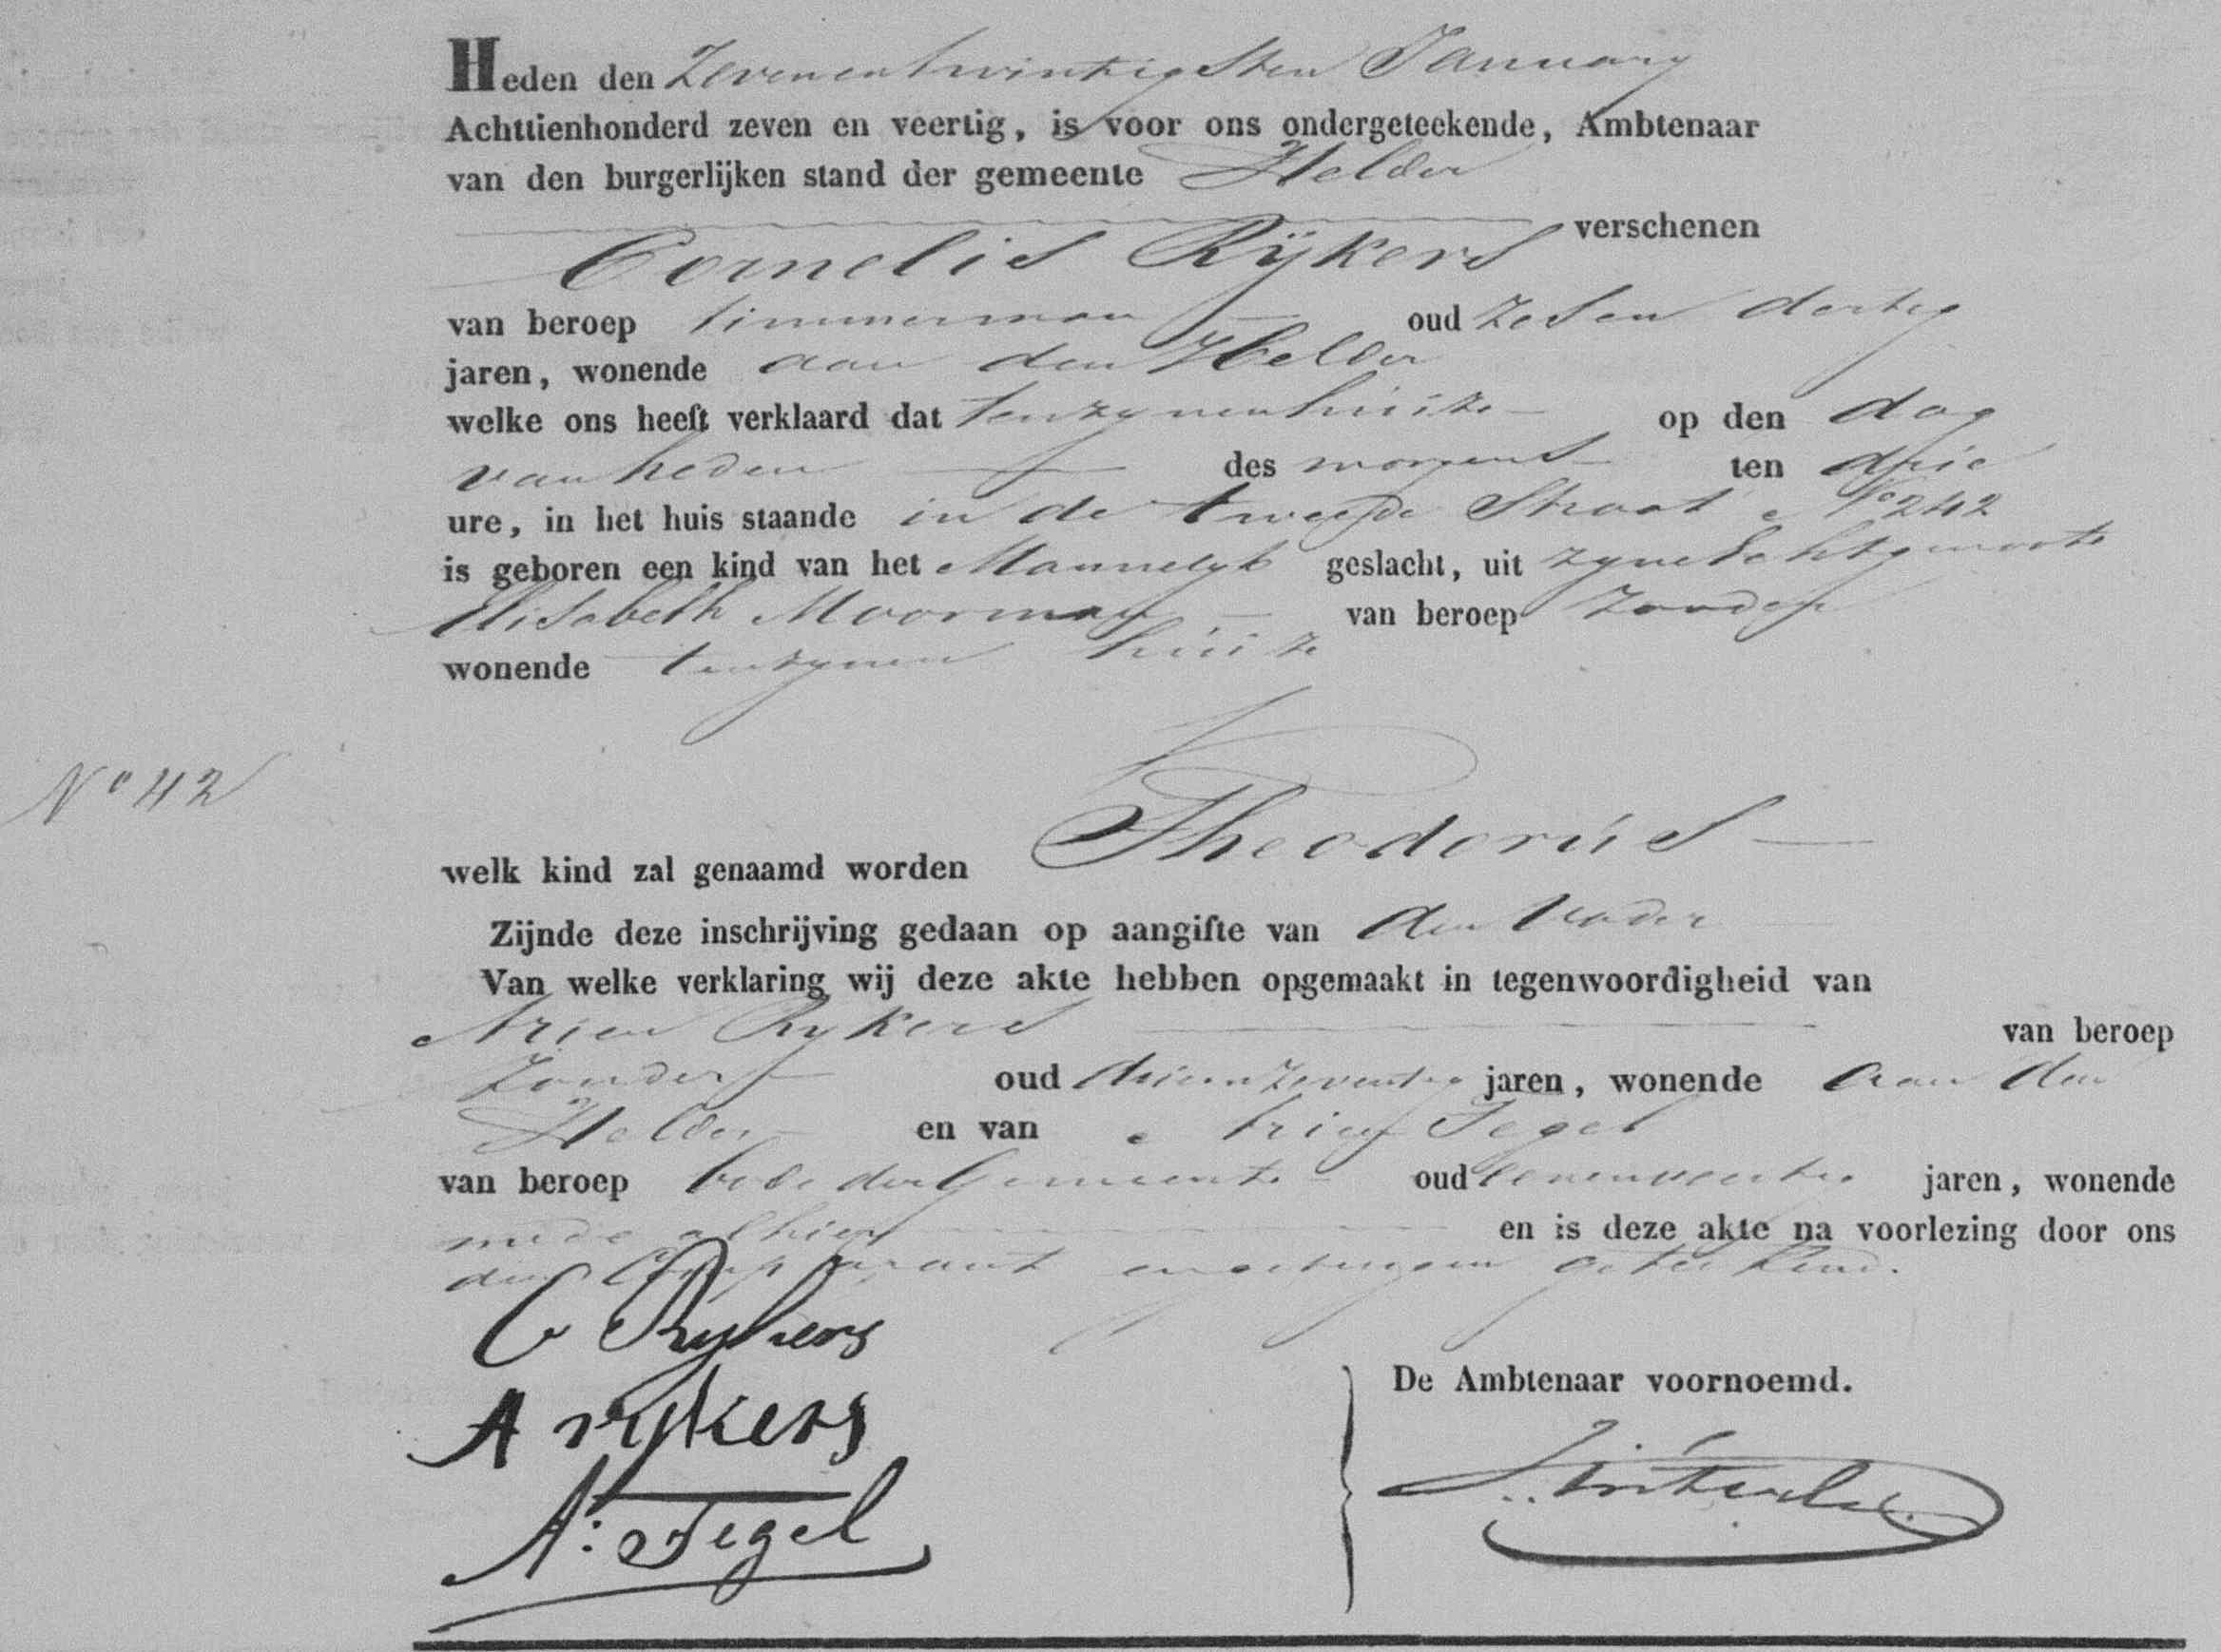 Heden den Zevenentwintigsten January
Achttienhonderd zeven en veertig, is voor ons ondergeteekende, Ambtenaar
van den burgerlijken stand der gemeente Helder
verschenen
Cornelis Rÿkers
van beroep timmerman oud zes en dertig
jaren, wonende aan den Helder
welke ons heeft verklaard dat tenzynenhuize op den dag
van heden des morgens ten drie
ure, in het huis staande in de tweede Straat No 242
is geboren een kind van het Mannelyk geslacht, uit zyne Echtgenoote
Elisabeth Moorman van beroep Zonder
wonende tenzynen huize
No 42
Theodorus
welk kind zal genaamd worden
Zijnde deze inschrijving gedaan op aangifte van den Vader
Van welke verklaring wij deze akte hebben opgemaakt in tegenwoordigheid van
Arien Rykers van beroep
Zonder oud drieenzeventig jaren, wonende aan den
Helder en van Arien Tegel
van beroep bode der Gemeente oud eenenveertig jaren, wonende
mede alhier en is deze akte na voorlezing door ons
den Comparant en getuigen geteekend.
C Rykers
A rykers
De Ambtenaar voornoemd.
A: Tegel